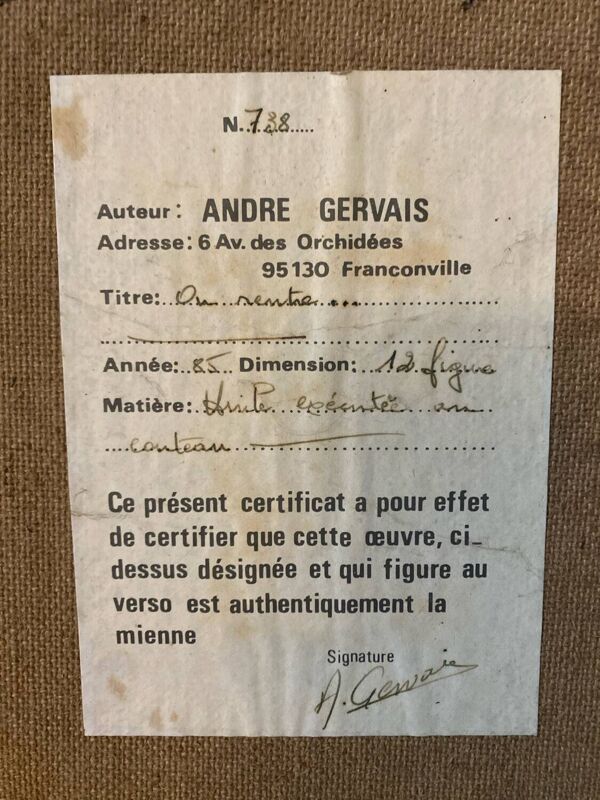 N...738.....
Auteur: ANDRE GERVAIS
Adresse: 6 Av. des Orchidées
95130 Franconville
Titre: On rentre...
Année: 85 Dimension: 12 figure
Matière: Huile exécutée au
couteau
Ce présent certificat a pour effet
de certifier que cette œuvre, ci_
dessus désignée et qui figure au
verso est authentiquement la
mienne
Signature
A. Gervais